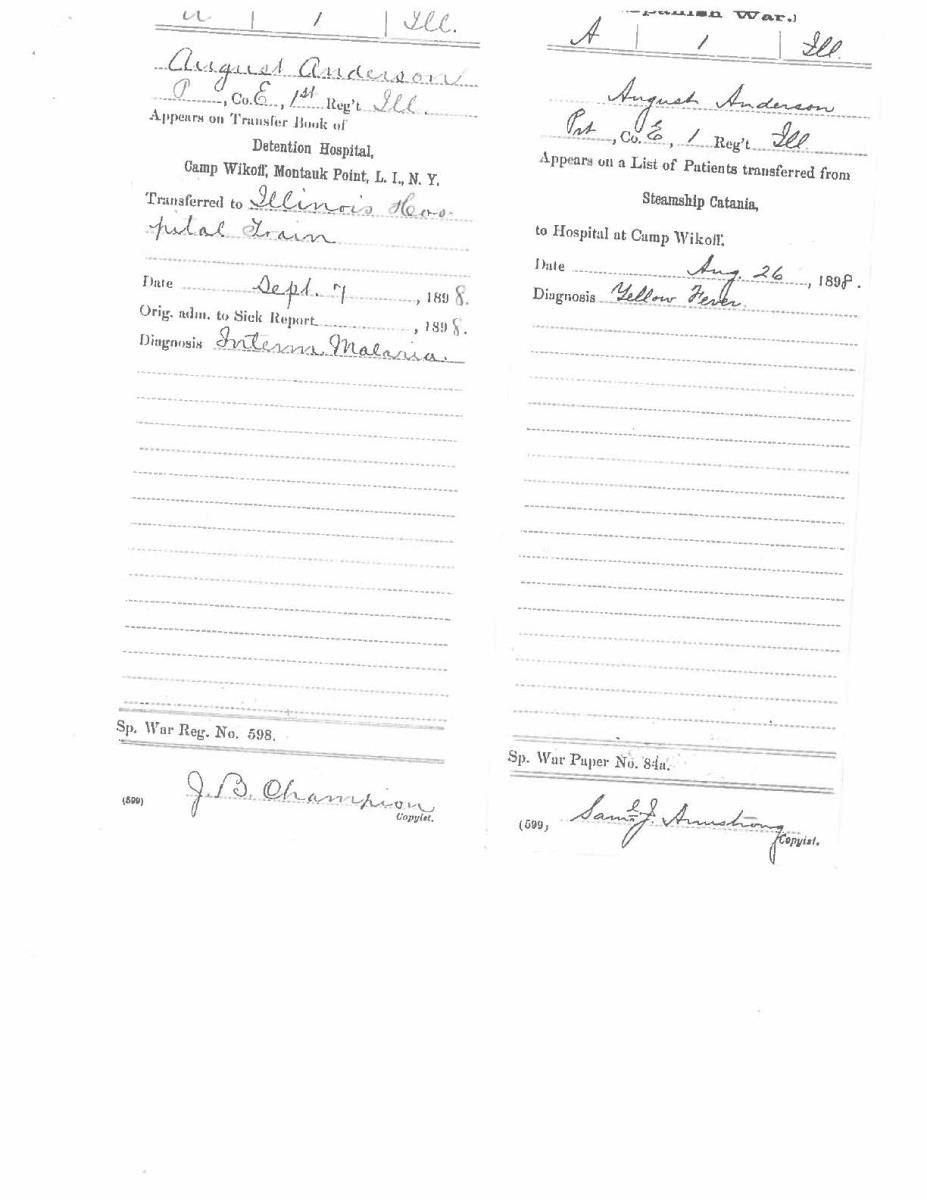 A | 1 | Ill.
August Anderson
P, Co. E, 1st Reg't Ill.
Appears on Transfer Book of
Detention Hospital,
Camp Wikoff, Montauk Point, L. I., N. Y.
Transferred to Illinois Hos-
pital Train
Date Sept. 7, 1898.
Orig. adm. to Sick Report , 1898.
Diagnosis Interm. Malaria.
Sp. War Reg. No. 598.
(599)
J. B. Champion
Copyist.
Spanish War.)
A | 1 | Ill.
August Anderson
Prt, Co. E, 1 Reg't Ill
Appears on a List of Patients transferred from
Steamship Catania,
to Hospital at Camp Wikoff.
Date Aug. 26, 1898.
Diagnosis Yellow Fever.
Sp. War Paper No. 84a.
(599)
Saml. J. Armstrong
Copyist.